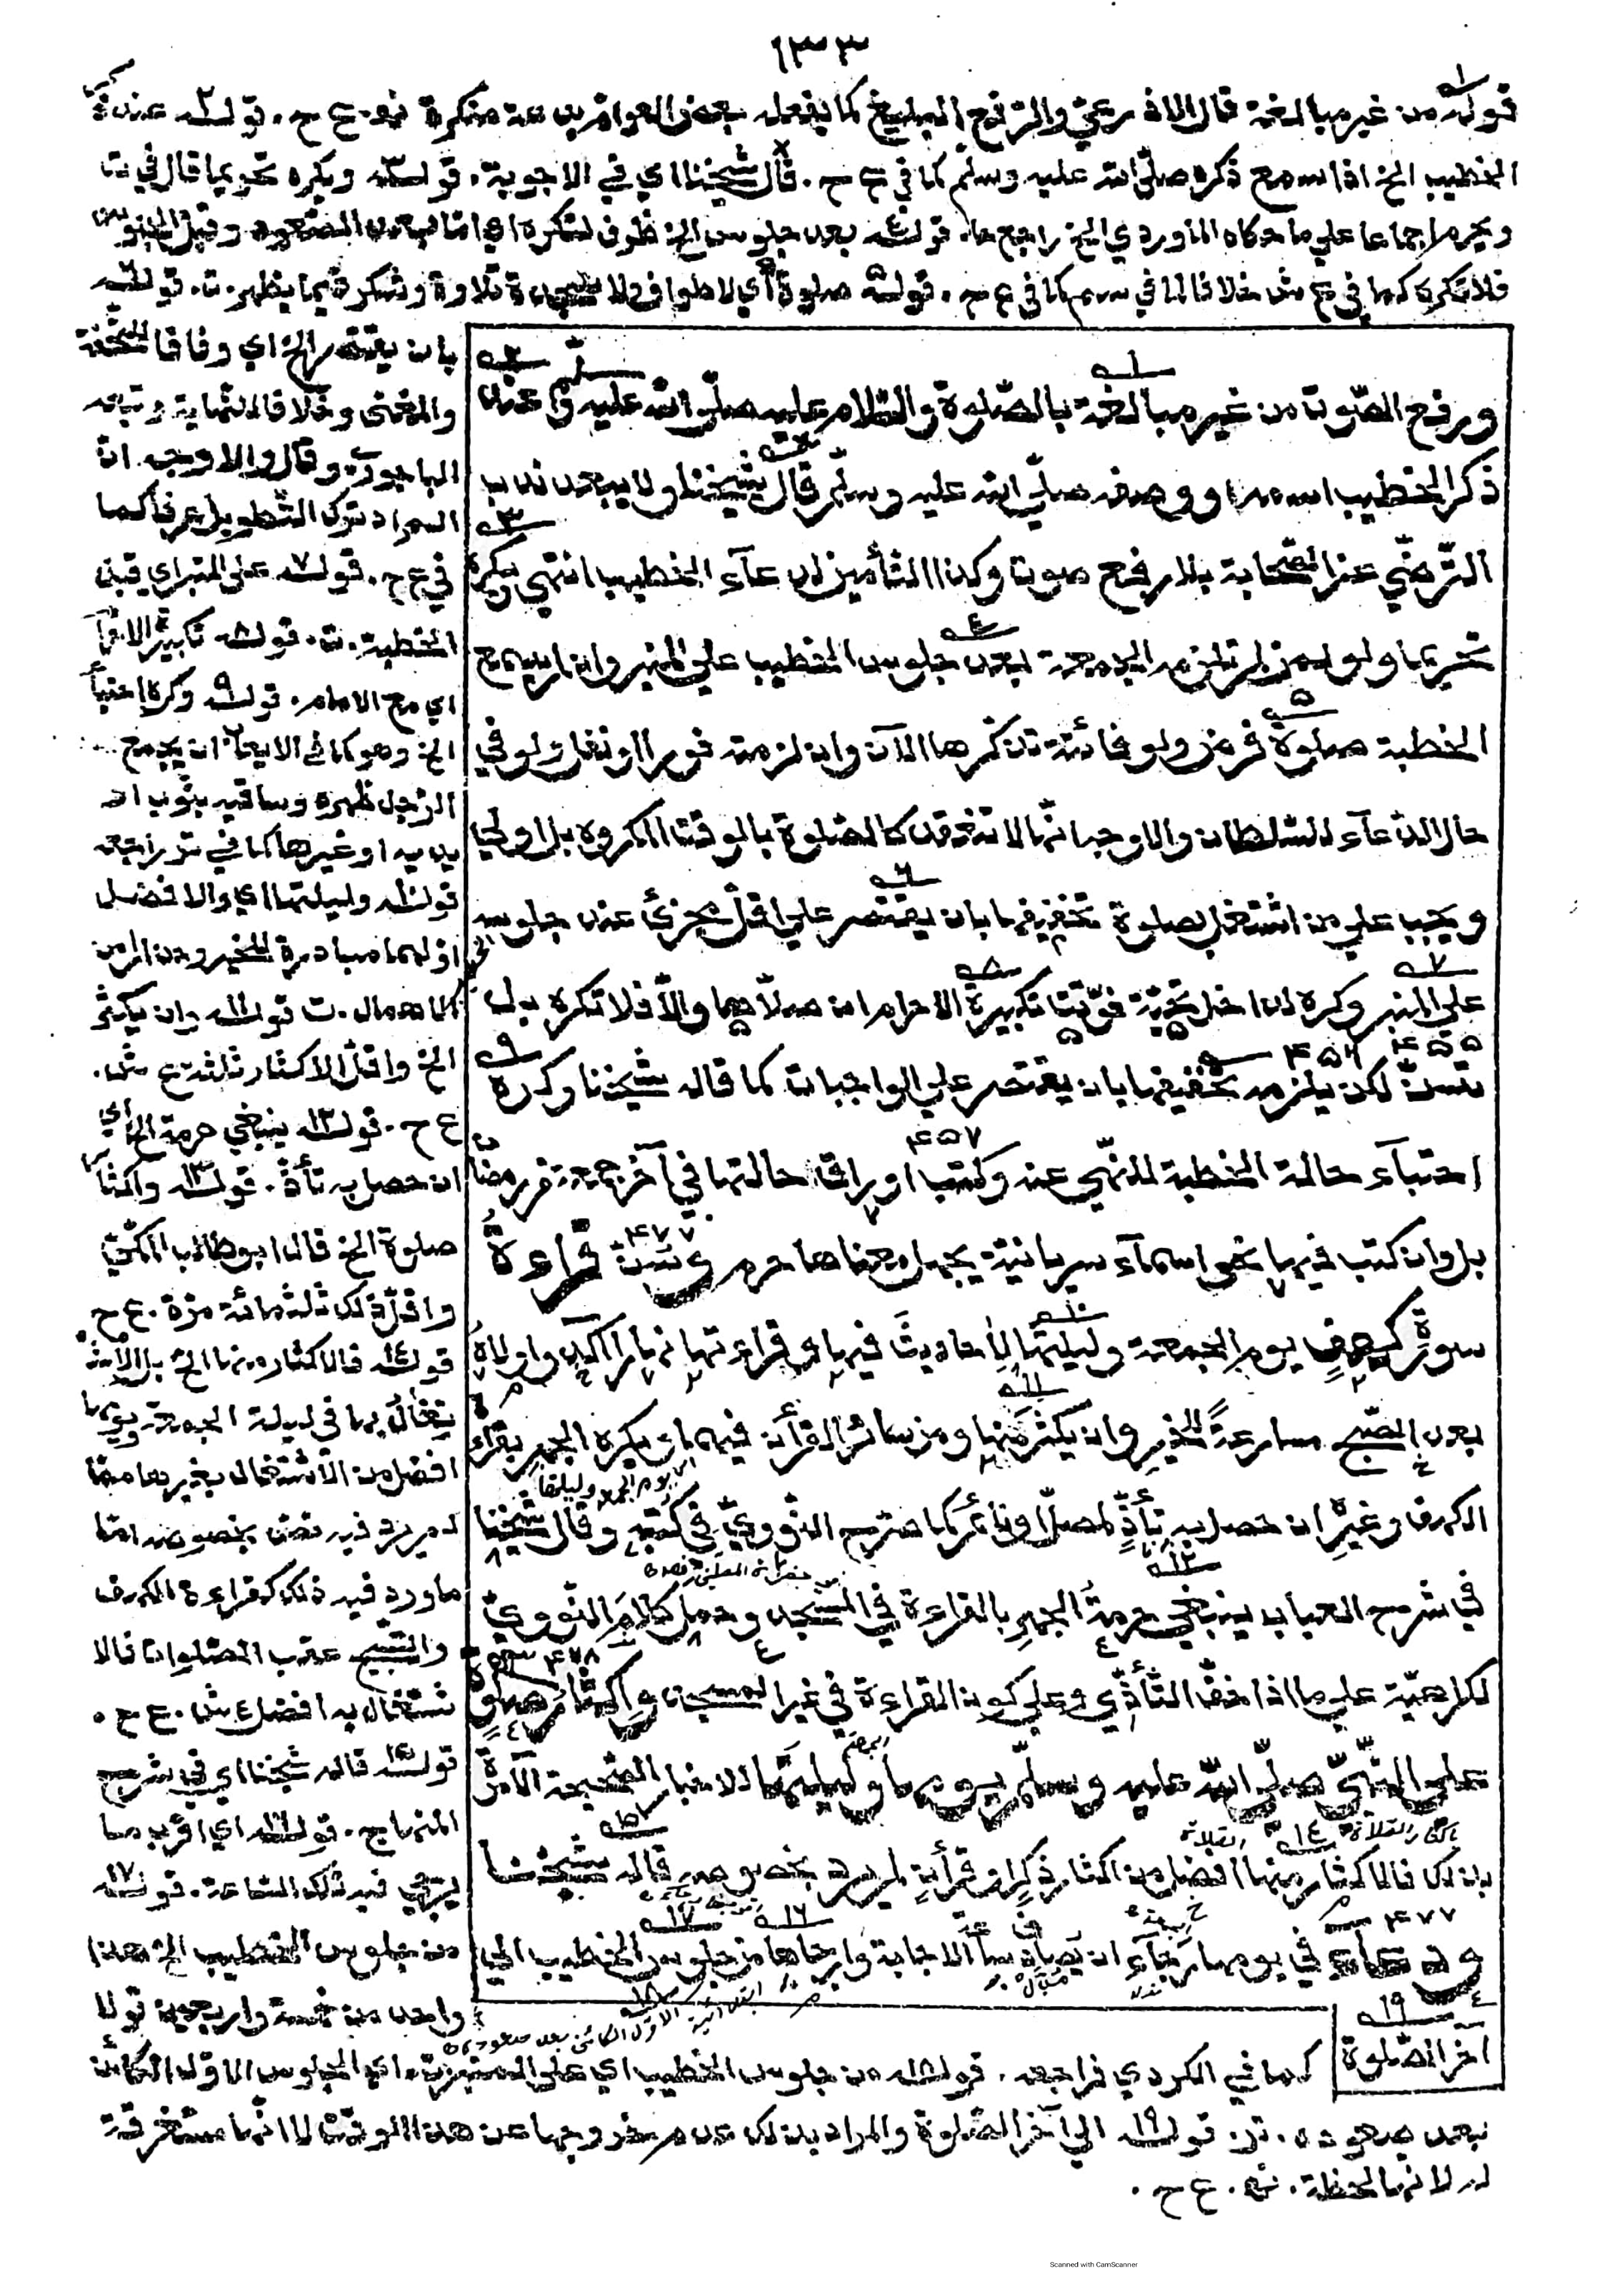 ١٣٣
قوله من غير مبالغة قال الاذرعي والرفع البليغ كما يفعله بعض العوام بدعة منكرة نهاية ع ح . قوله عند ذكر
الخطيب الخ اذا سمع ذكره صلى الله عليه وسلم كما في ع ح . قال شيخنا اي في الاجوبة . قوله ويكره تحريما قال في ت
ويحرم اجماعا على ما حكاه الماوردي الخ راجعها . قوله بعد جلوس الخ ظرف لتكره اي اما بعد الصعود وقبل الجلوس
فلا تكره كما في ع ش خلافا لما في سم كما في ع ح . قوله صلوة أي لا طواف ولا سجدة تلاوة وشكر فيما يظهر . ت . قوله
ورفع الصّوت من غير مبالغة بالصّلوة والسّلام عليه صلّى الله عليه وسلّم عند
ذكر الخطيب اسمه او وصفه صلى الله عليه وسلّم قال شيخنا ولا يبعد ندب
التّرضّي عن الصّحابة بلا رفع صوت وكذا التأمين لدعآء الخطيب انتهى ويكره
تحريما ولو لمن لم تلزمه الجمعة بعد جلوس الخطيب على المنبر وان لم يسمع
الخطبة صلوة فرض ولو فائتة تذكّرها الآن وان لزمته فورا او نفل ولو في
حال الدّعآء للسّلطان والاوجه انّها لا تنعقد كالصّلوة بالوقت المكروه بل اولى
ويجب على من اشتغل بصلوة تخفيفها بان يقتصر على اقلّ مجزئ عند جلوسه
على المنبر وكره لداخل تحيّة فوّتت تكبيرة الاحرام ان صلّاها والّا فلا تكره بل
٤٥٥ ٤٥٦
تسنّ لكن يلزمه تخفيفها بان يقتصر على الواجبات كما قاله شيخنا وكره
٤٥٧
احتبآء حالة الخطبة للنّهي عنه وكتب اوراق حالتها في آخر جمعة من رمضان
٤٧٧
بل وان كتب فيها نحو اسمآء سريانيّة يجهل معناها حرم وسنّ قراءة
سورة كهف يوم الجمعة وليلتها لأحاديث فيها وقراءتها نهارا آكد واولاه
بعد الصّبح مسارعةً للخير وان يكثر منها ومن سائر القرآن فيهما ويكره الجهر بقراءة
يوم الجمعة وليلتها
الكهف وغيره ان حصل به تأذّ لمصلّ او نائم كما صرّح النّوويّ في كتبه وقال شيخنا
في شرح العباب ينبغي حرمة الجهر بالقراءة في المسجد وحمل كلام النّوويّ
٤٧٨
لكراهية على ما اذا خفّ التّأذّي وعلى كون القراءة في غير المسجد واكثار صلوة
على النّبيّ صلّى الله عليه وسلّم يومها وليلتها للاخبار الصّحيحة الآمرة
بذلك فالاكثار منها افضل من اكثار ذكر او قرآن لم يرد بخصوصه قاله شيخنا
٤٧٧
ودعاء في يومها رجآء ان يصادف ساعة الاجابة وارجاها من جلوس الخطيب الى
اخر الصّلوة
بان يقتصر الخ اي وفاقا للتحفة
والمغنى وخلافا للنهاية وتبعه
الباجوري وقال والاوجه ان
المراد ترك التّطويل عرفا كما
في ع ح . قوله على المنبر اي قبل
الخطبة . ت . قوله تكبيرة الاحرام
اي مع الامام . قوله وكره احتبآء
الخ وهو كما في الايعاب ان يجمع
الرّجل ظهره وساقيه بثوب او
يديه او غيرها كما في تر راجعه
قوله وليلتها اي والافضل
اولهما مبادرة للخير وحذرا من
الاهمال . ت قوله وان يكثر
الخ واقل الاكثار ثلثة ع ش .
ع ح . قوله ينبغي حرمة الخ أي
ان حصل به تأذّ . قوله واكثار
صلوة الخ قال ابو طالب المكّيّ
واقلّ ذلك ثلثمائة مرّة . ع ح
قوله فالاكثار منها الخ بل الاشـ
ـتغال بها في ليلة الجمعة ويومها
افضل من الاشتغال بغيرها ممّا
لم يرد فيه نصّ بخصوصه امّا
ما ورد فيه ذلك كقراءة الكهف
والتسبيح عقب الصّلوات فالا
شتغال به افضل ع ش . ع ح .
قوله قاله شيخنا اي في شرح
المنهاج . قوله اي اقرب ما
يرجى فيه تلك السّاعة . قوله
من جلوس الخطيب الخ هذا
واحد من خمسة واربعين قولا
كما في الكردي فراجعه . قوله من جلوس الخطيب اي على المنبر . ت . اي الجلوس الاوّل الكائن
بعد صعوده . تر . قوله الى آخر الصّلوة والمراد بذلك عدم خروجها عن هذا الوقت لا انّها مستغرقة
له لانها لحظة . نه . ع ح .
Scanned with CamScanner